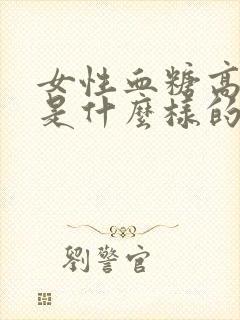 女性血糖高
是什麼樣的
劉警官